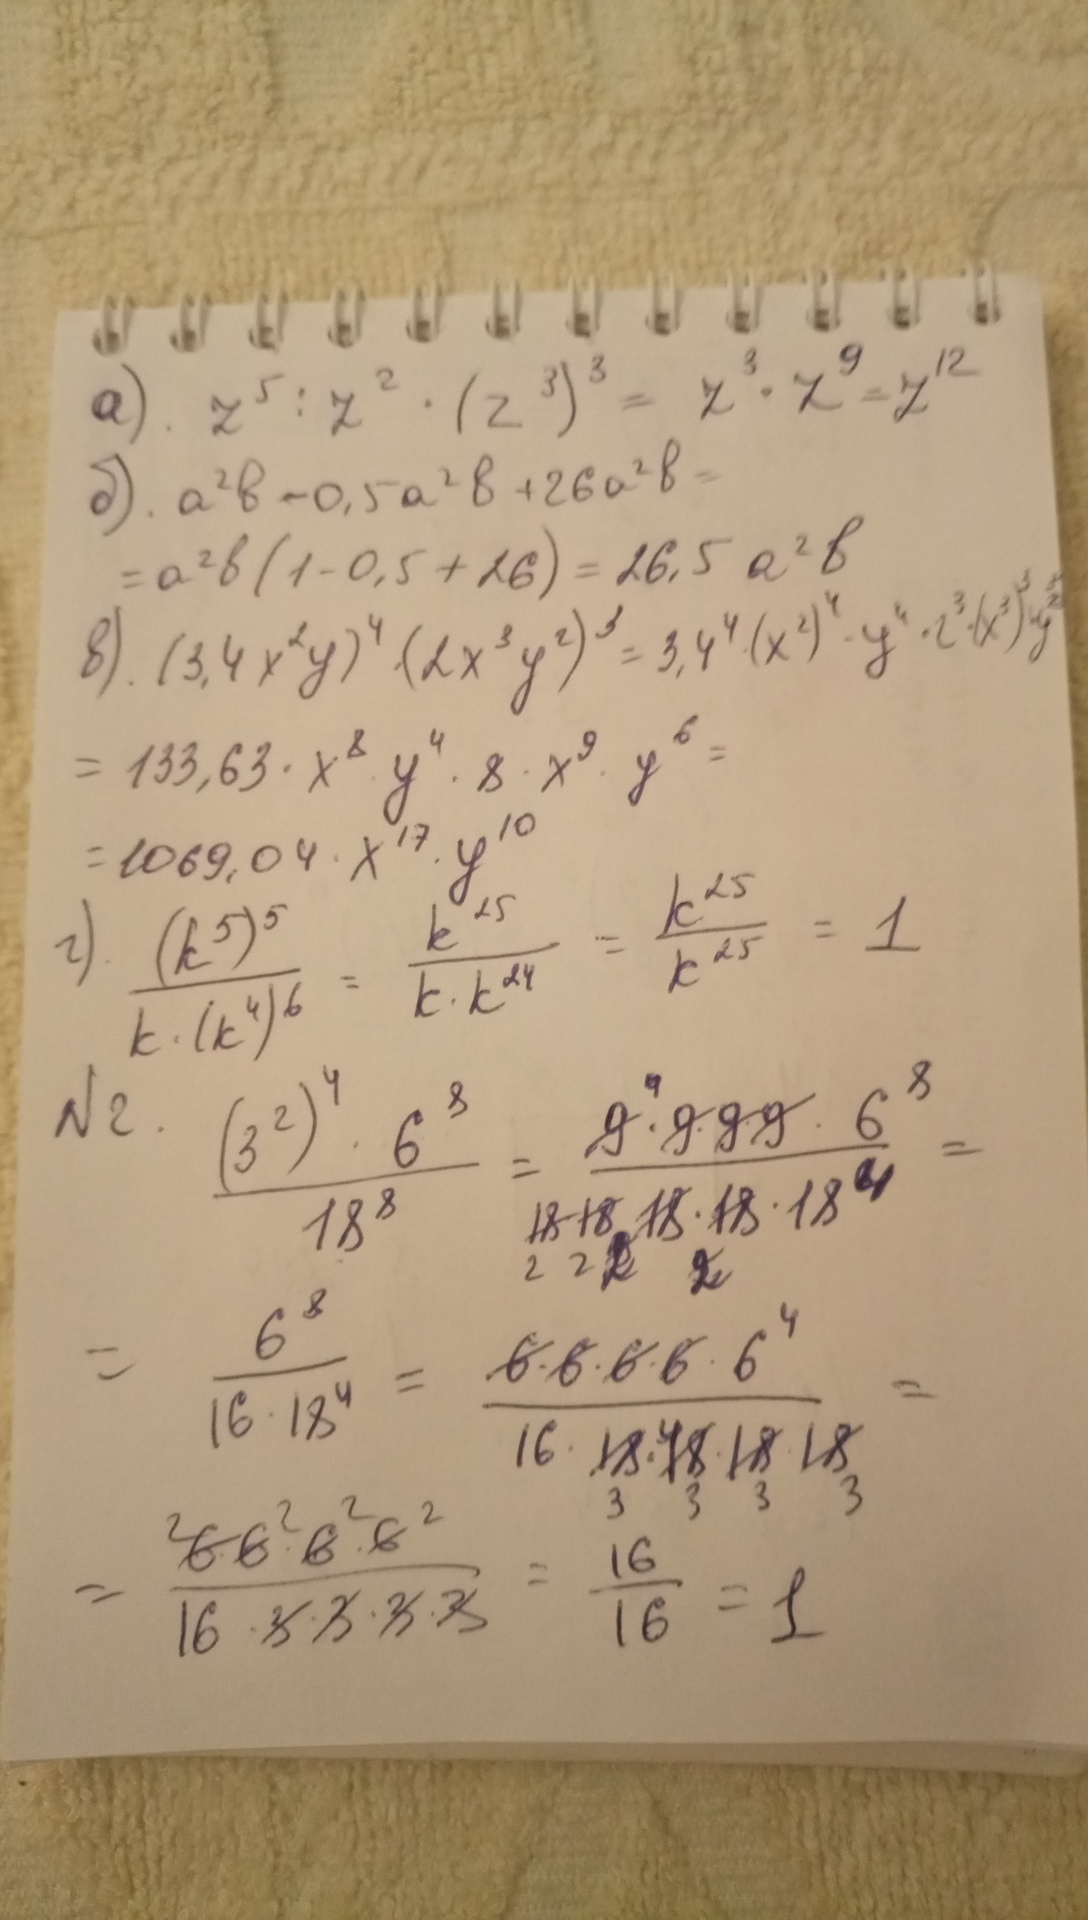 а). z⁵ : z² · (z³)³ = z³ · z⁹ = z¹²
б). a²b - 0,5a²b + 26a²b =
= a²b (1 - 0,5 + 26) = 26,5 a²b
в). (3,4x²y)⁴ · (2x³y²)³ = 3,4⁴ · (x²)⁴ · y⁴ · 2³ · (x³)³
= 133,63 · x⁸ · y⁴ · 8 · x⁹ · y⁶ =
= 1069,04 · x¹⁷ · y¹⁰
г). (k⁵)⁵ / k · (k⁴)⁶ = k²⁵ / k · k²⁴ = k²⁵ / k²⁵ = 1
N2. (3²)⁴ · 6⁸ / 18⁸ = 9 · 9 · 9 · 9 · 6⁸ / 18 · 18 · 18 · 18 · 18⁴ =
2 2 2 2
= 6⁸ / 16 · 18⁴ = 6 · 6 · 6 · 6 · 6⁴ / 16 · 18 · 18 · 18 · 18 =
3 3 3 3
2 2 2 2
= 6 · 6 · 6 · 6 / 16 · 3 · 3 · 3 · 3 = 16 / 16 = 1